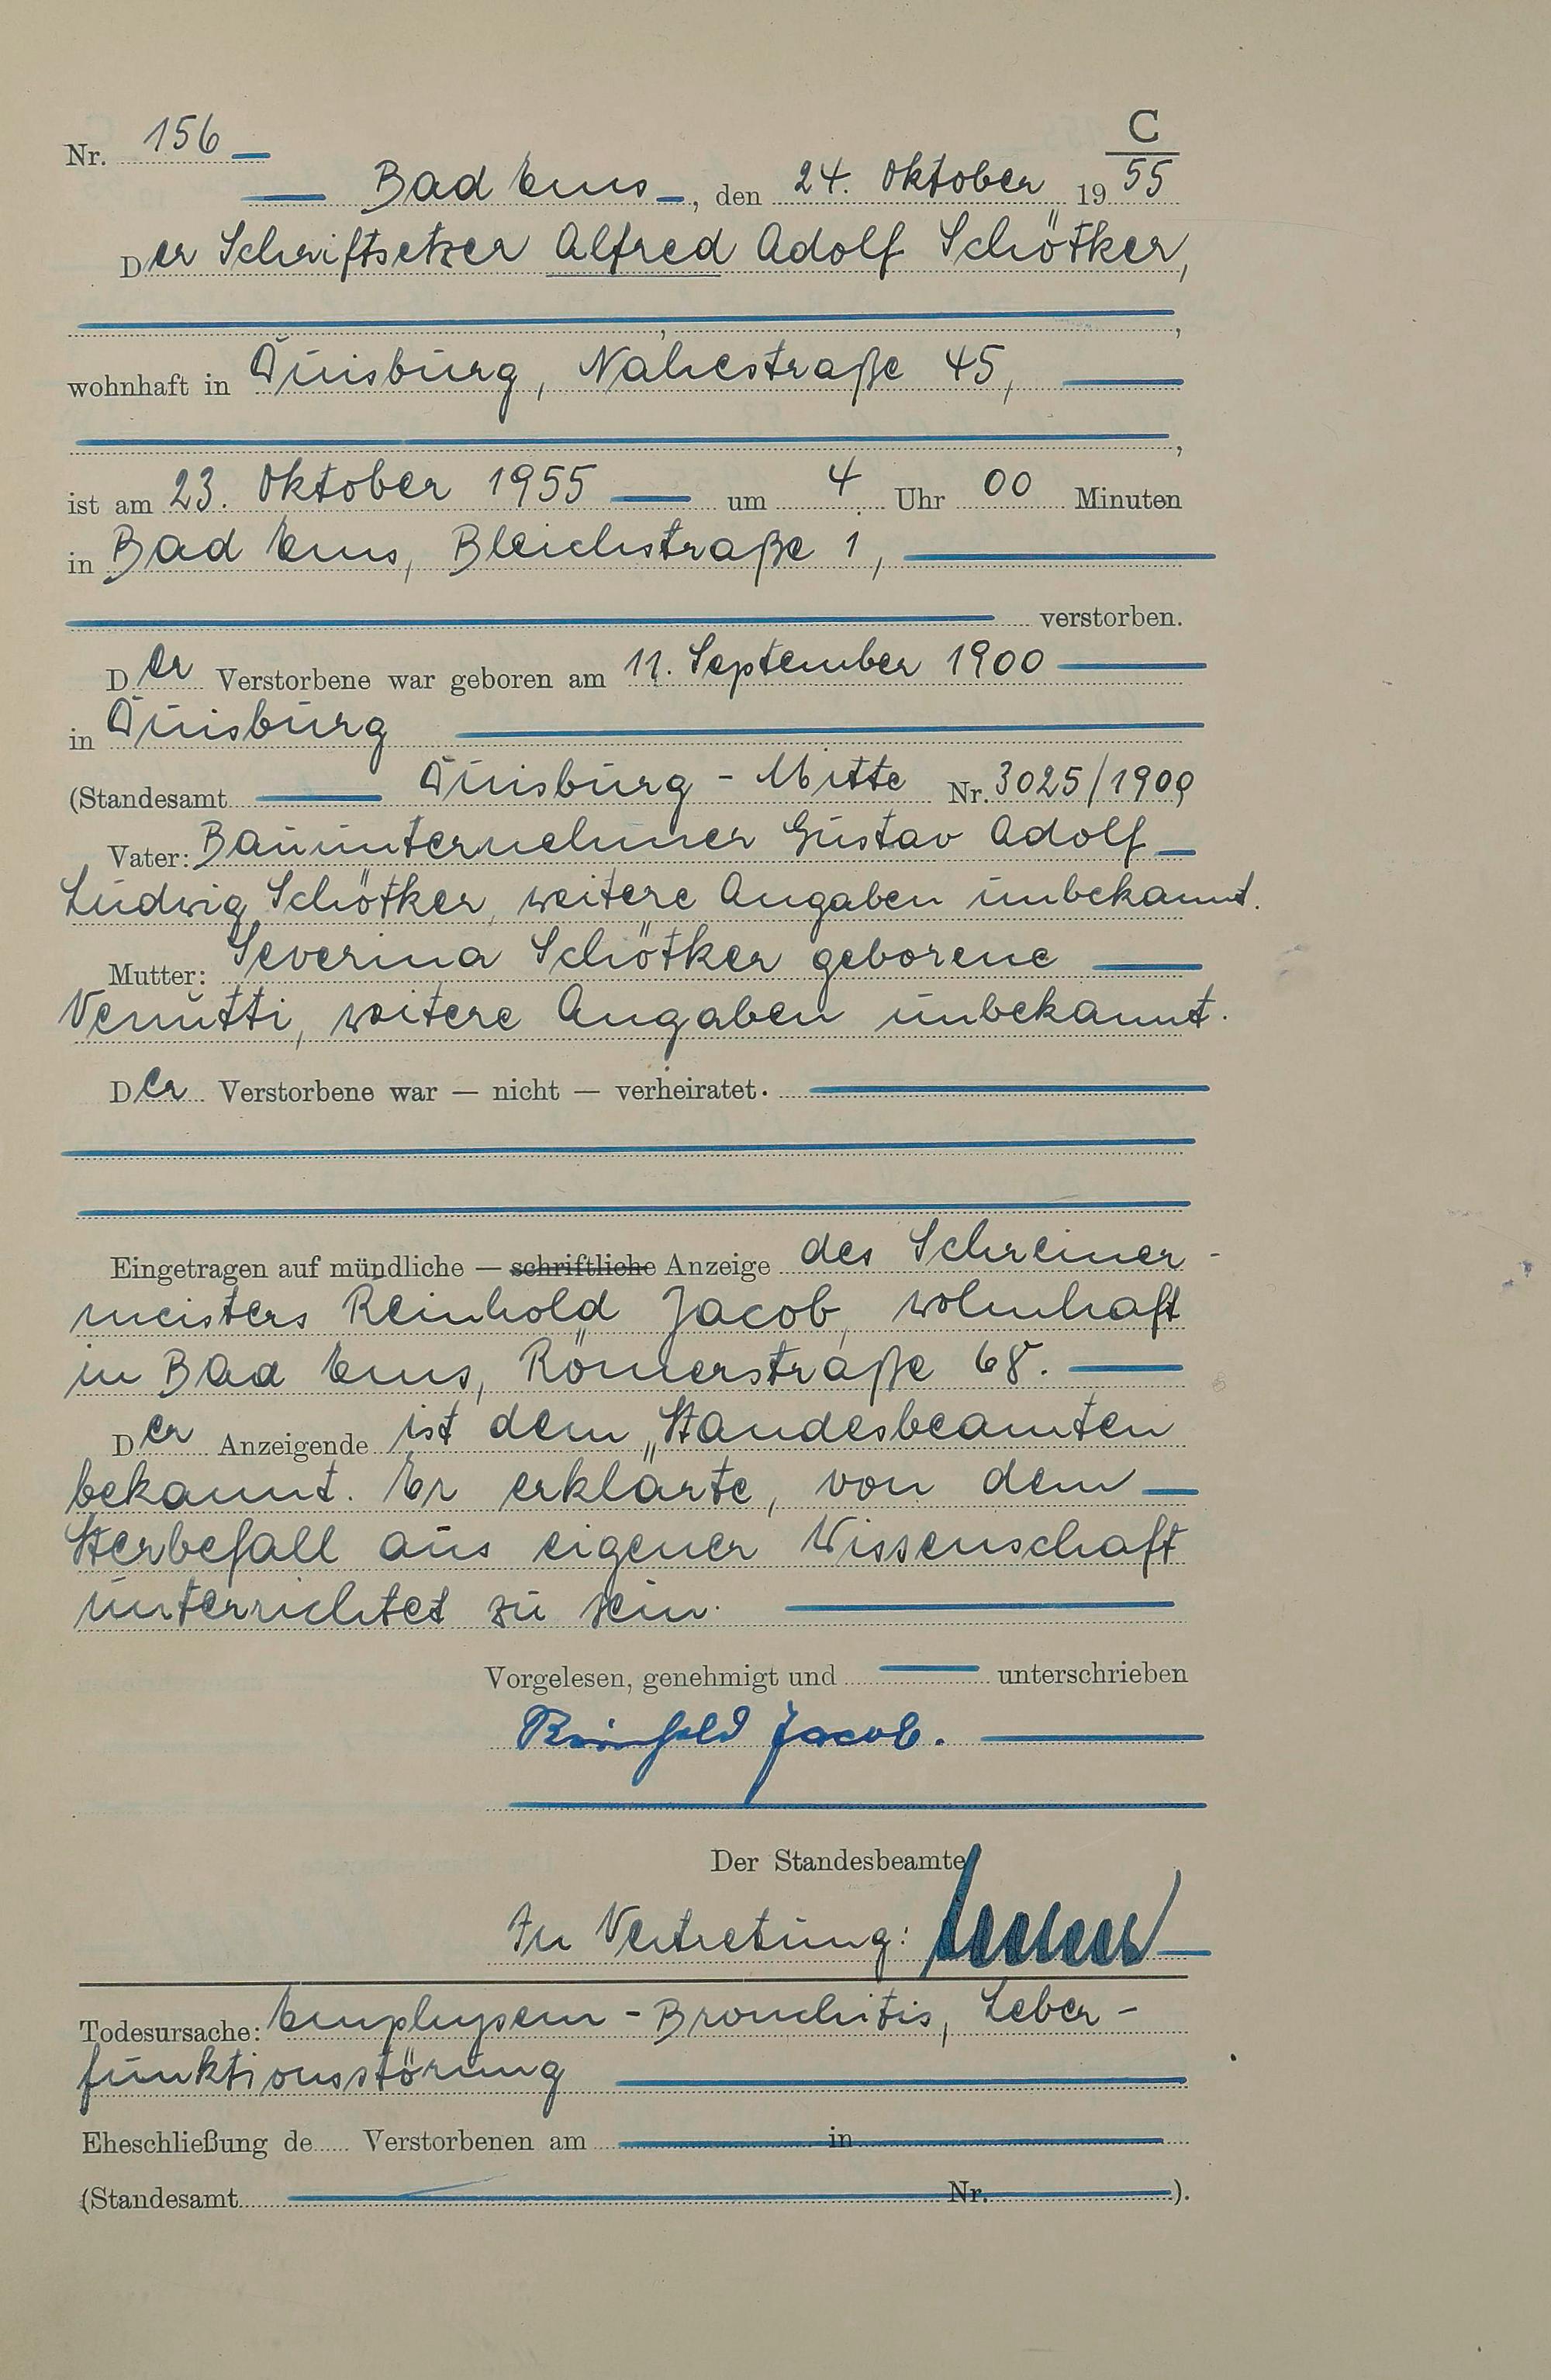 C
Nr. 156
Bad Ems, den 24. Oktober 1955
Der Schriftsetzer Alfred Adolf Schötker,
,
wohnhaft in Duisburg, Nahestraße 45,
,
ist am 23. Oktober 1955 um 4 Uhr 00 Minuten
in Bad Ems, Bleichstraße 1,
verstorben.
Der Verstorbene war geboren am 11. September 1900
in Duisburg
(Standesamt Duisburg - Mitte Nr. 3025/1900
Vater: Bauunternehmer Gustav Adolf
Ludwig Schötker, weitere Angaben unbekannt.
Mutter: Severina Schötker geborene
Venutti, weitere Angaben unbekannt.
Der Verstorbene war — nicht — verheiratet.
Eingetragen auf mündliche — schriftliche Anzeige des Schreiner-
meisters Reinhold Jacob, wohnhaft
in Bad Ems, Römerstraße 68.
Der Anzeigende ist dem Standesbeamten
bekannt. Er erklärte, von dem
Sterbefall aus eigener Wissenschaft
unterrichtet zu sein.
Vorgelesen, genehmigt und unterschrieben
Reinhold Jacob.
Der Standesbeamte
In Vertretung:
Todesursache: Emphysem - Bronchitis, Leber-
funktionsstörung
Eheschließung de Verstorbenen am in
(Standesamt Nr. ).